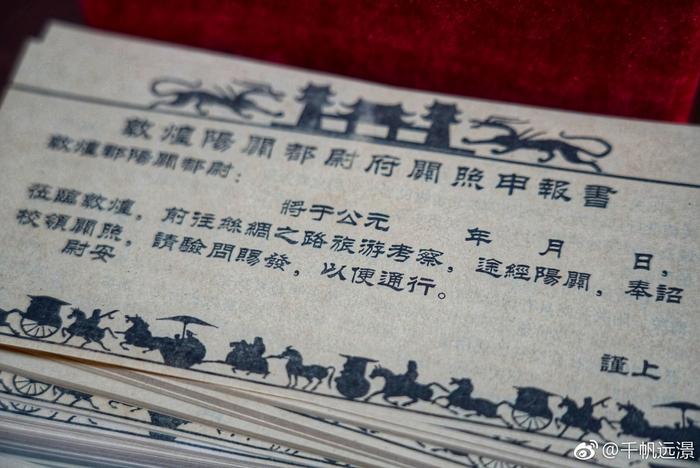 敦煌陽關都尉府關照申報書
敦煌郡陽關都尉：
將于公元　年　月　日，
莅臨敦煌，前往絲綢之路旅游考察，途經陽關，奉詔
校領關照，請驗問賜發，以便通行。
尉安
謹上
@千帆远濝